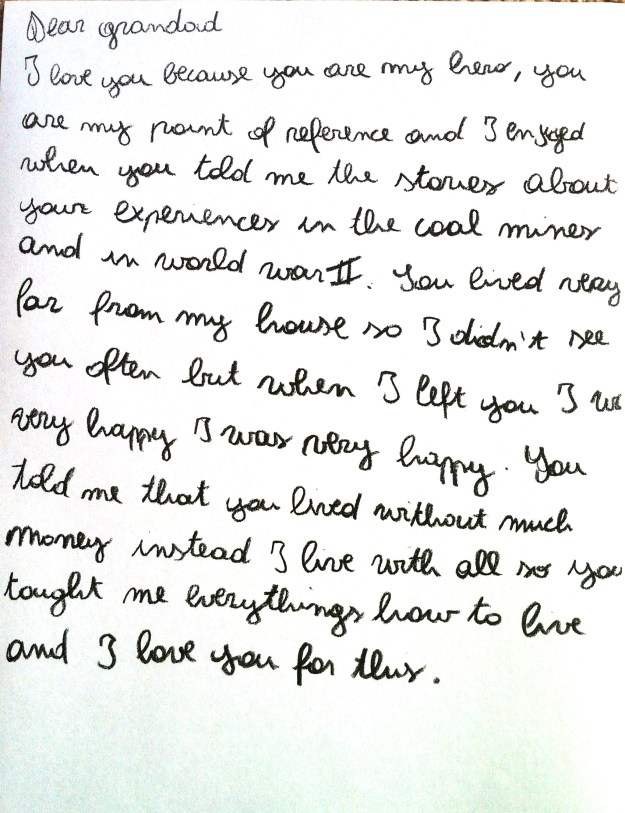 Dear grandad
I love you because you are my hero, you
are my point of reference and I enjoyed
when you told me the stories about
your experiences in the coal mines
and in world war II. You lived very
far from my house so I didn't see
you often but when I left you I
very happy I was very happy. You
told me that you lived without much
money instead I live with all so you
tought me everythings how to live
and I love you for this.